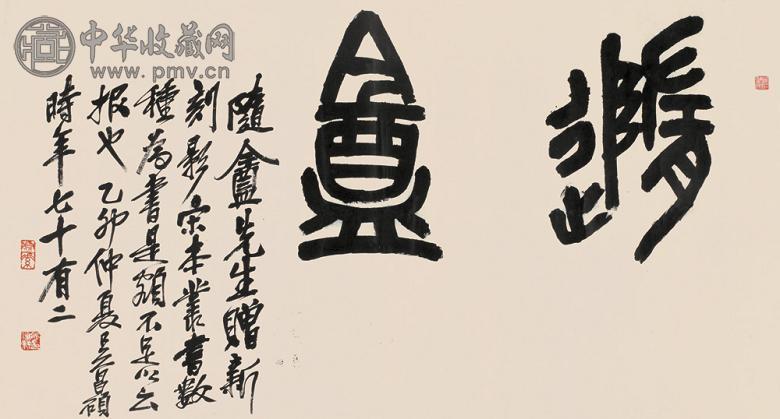 隨盦
隨盦先生贈新
刻影宋本叢書數
種為書是額不足以云
报也乙卯仲夏吴昌碩
時年七十有二
中华收藏网
www.pmv.cn